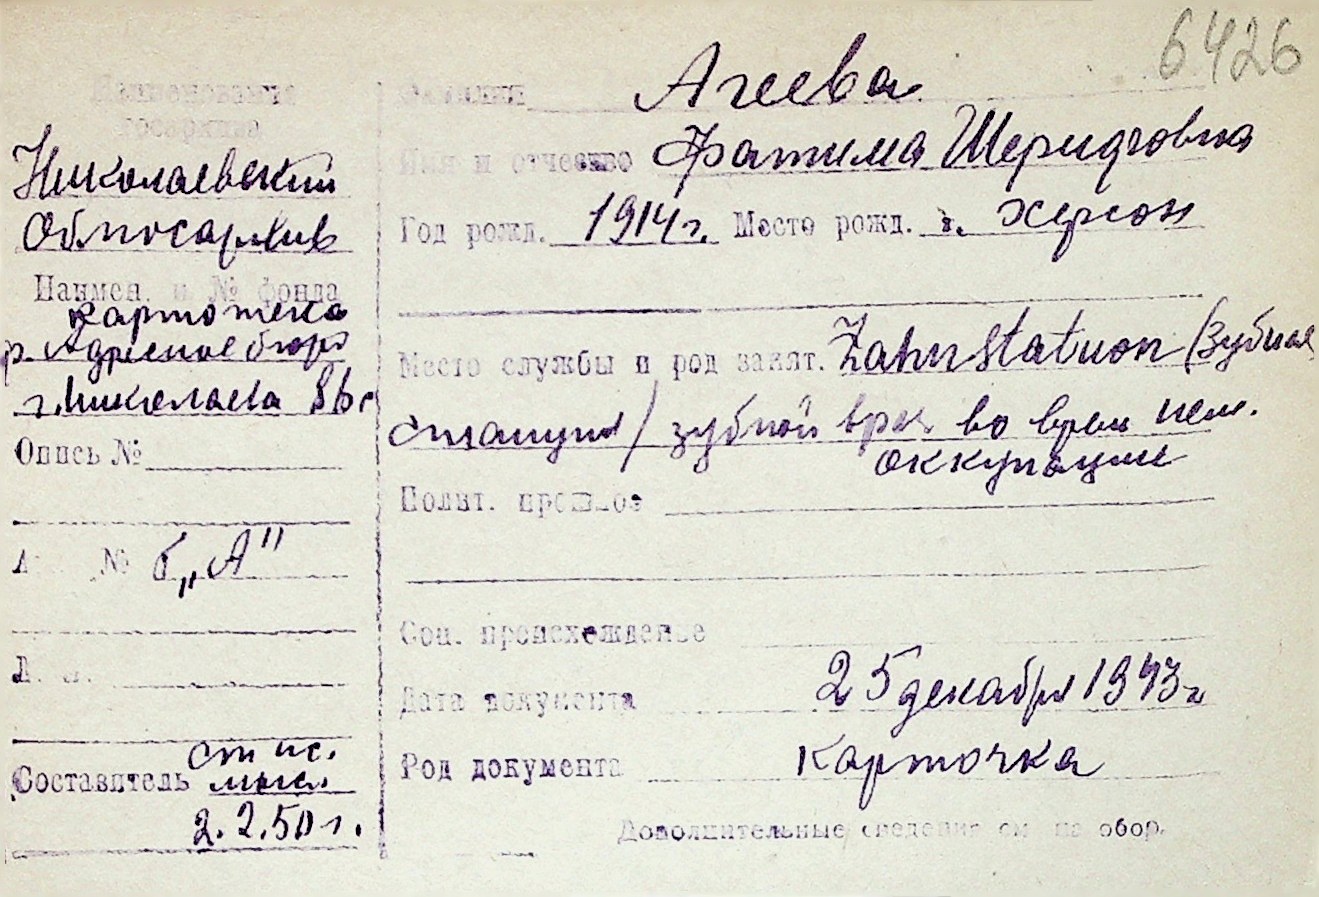 6426
Наименование
госархива
Николаевский
Облгосархив
Наимен. и № фонда
картотека
Адресное бюро
г. Николаева
Опись №
№ б„А"
Составитель ст
2.2.50 г.
Фамилия Агеева
Имя и отчество Фатима
Год рожд. 1914 г. Место рожд. г. Херсон
Место службы и род занят. Zahnstatuon (Зубная
станция) зубной врач во врем нем.
оккупации
Полит. прошлое
Соц. происхождение
Дата документа 25 декабря 1943 г
Род документа карточка
Дополнительные сведения см на обор.